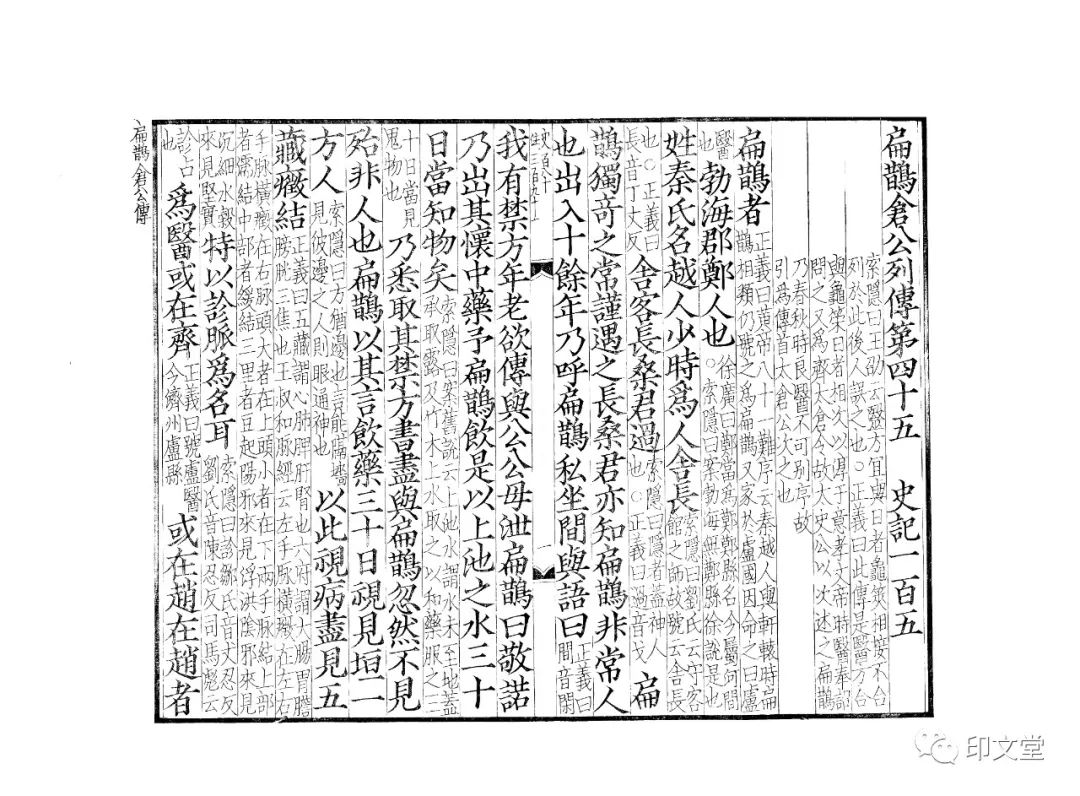 扁鵲倉公列傳第四十五 史記一百五
索隱曰王劭云醫方宜與日者龜筴相接不合
列於此後人誤之也○正義曰此傳是醫方合
與龜策日者相次以淳于意孝文帝時醫奉詔
問之又爲齊太倉令故太史公以次述之扁鵲
乃春秋時良醫不可別序故
引爲傳首太倉公次之也
扁鵲者
正義曰黃帝八十一難序云秦越人與軒轅時扁
鵲相類仍號之爲扁鵲又家於盧國因命之曰盧
醫
也
勃海郡鄭人也
徐廣曰鄭當爲鄚鄚縣名今屬河間
○索隱曰案勃海無鄭縣徐說是也
姓秦氏名越人少時爲人舍長
索隱曰劉氏云守客
館之師故號云舍長
也○正義曰
長音丁丈反
舍客長桑君過
索隱曰隱者蓋神人
也○正義曰過音戈
扁
鵲獨奇之常謹遇之長桑君亦知扁鵲非常人
也出入十餘年乃呼扁鵲私坐間與語曰
正義曰
間音閑
我有禁方年老欲傳與公公毋泄扁鵲曰敬諾
乃出其懷中藥予扁鵲飲是以上池之水三十
日當知物矣
索隱曰案舊說云上池水謂水未至地蓋
承取露及竹木上水取之以和藥服之三
十日當見
鬼物也
乃悉取其禁方書盡與扁鵲忽然不見
殆非人也扁鵲以其言飲藥三十日視見垣一
方人
索隱曰方猶邊也言能隔牆
見彼邊之人則眼通神也
以此視病盡見五
藏癥結
正義曰五藏謂心肺脾肝腎也六府謂大腸胃膽
膀胱三焦也王叔和脈經云左手脉橫癥在左右
手脉橫癥在右脉頭大者在上頭小者在下兩手脉結上部
者濡結中部者緩結三里者豆起陽邪來見浮洪陰邪來見
沉細水穀
來見堅實
特以診脈爲名耳
索隱曰診鄒氏音丈忍反
劉氏音陳忍反司馬彪云
診占
也
爲醫或在齊
正義曰號盧醫
今濟州盧縣
或在趙在趙者
扁鵲倉公傳
印文堂